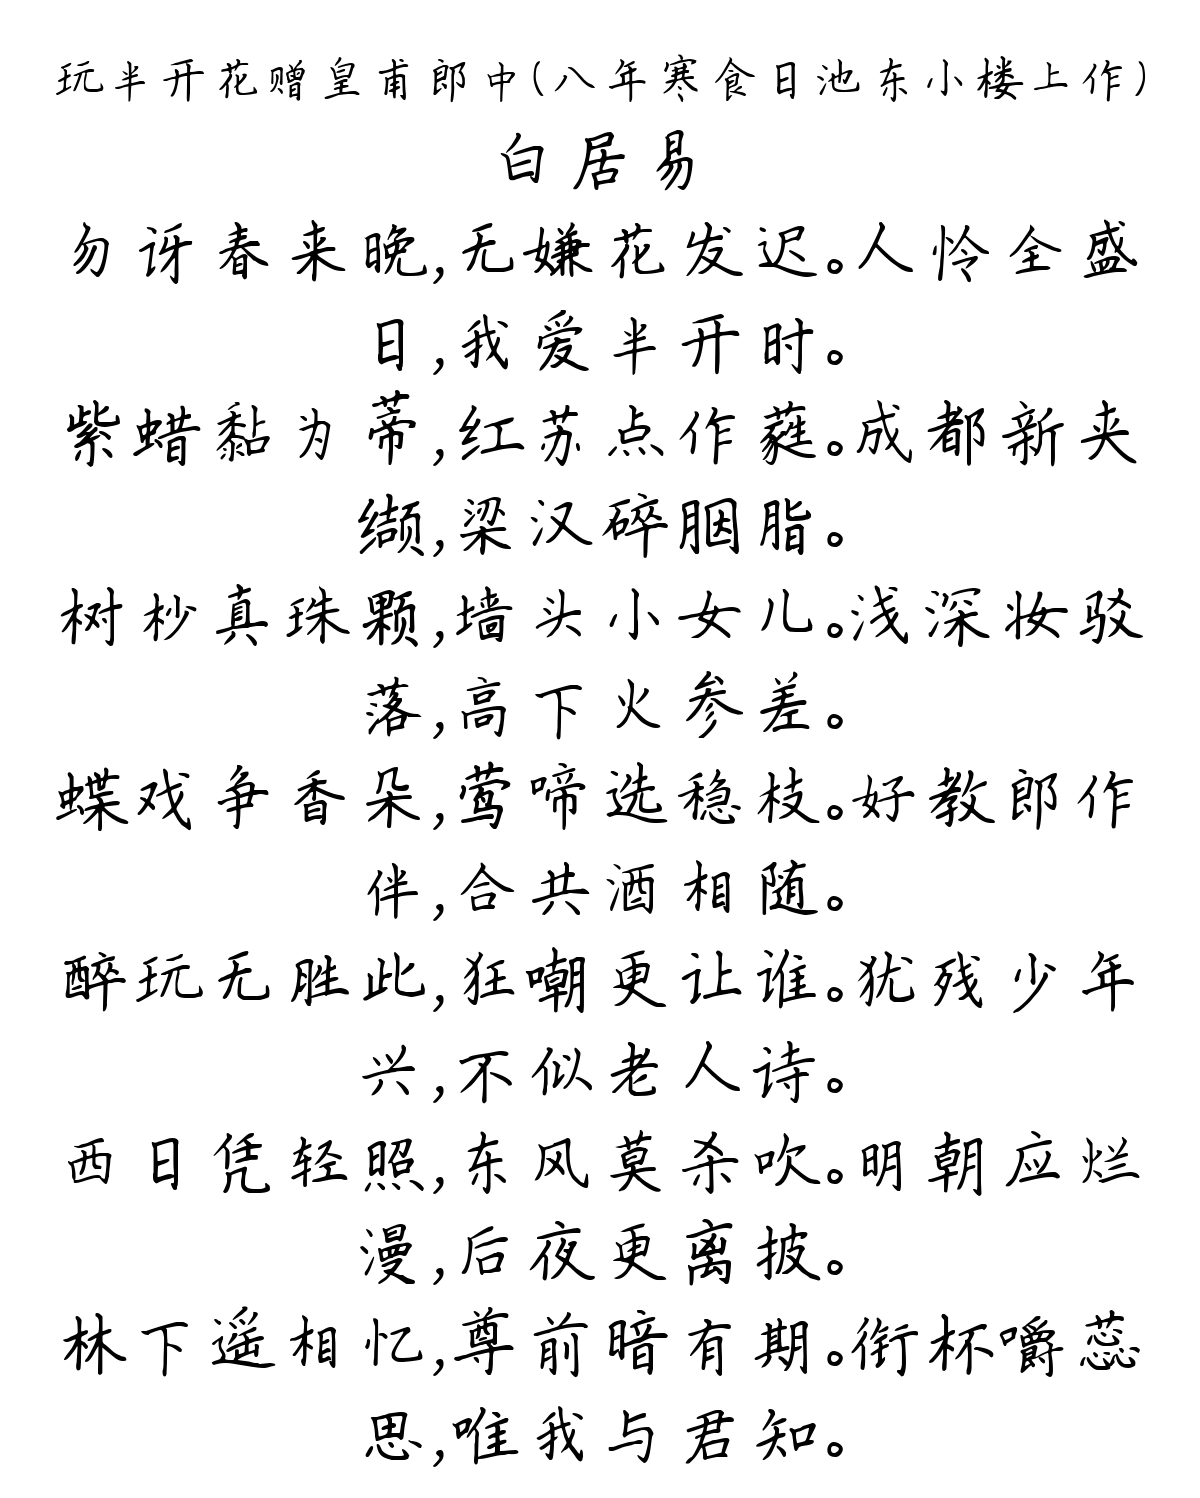 玩半开花赠皇甫郎中(八年寒食日池东小楼上作)
白居易
勿讶春来晚,无嫌花发迟。人怜全盛
日,我爱半开时。
紫蜡黏为蒂,红苏点作蕤。成都新夹
缬,梁汉碎胭脂。
树杪真珠颗,墙头小女儿。浅深妆驳
落,高下火参差。
蝶戏争香朵,莺啼选稳枝。好教郎作
伴,合共酒相随。
醉玩无胜此,狂嘲更让谁。犹残少年
兴,不似老人诗。
西日凭轻照,东风莫杀吹。明朝应烂
漫,后夜更离披。
林下遥相忆,尊前暗有期。衔杯嚼蕊
思,唯我与君知。